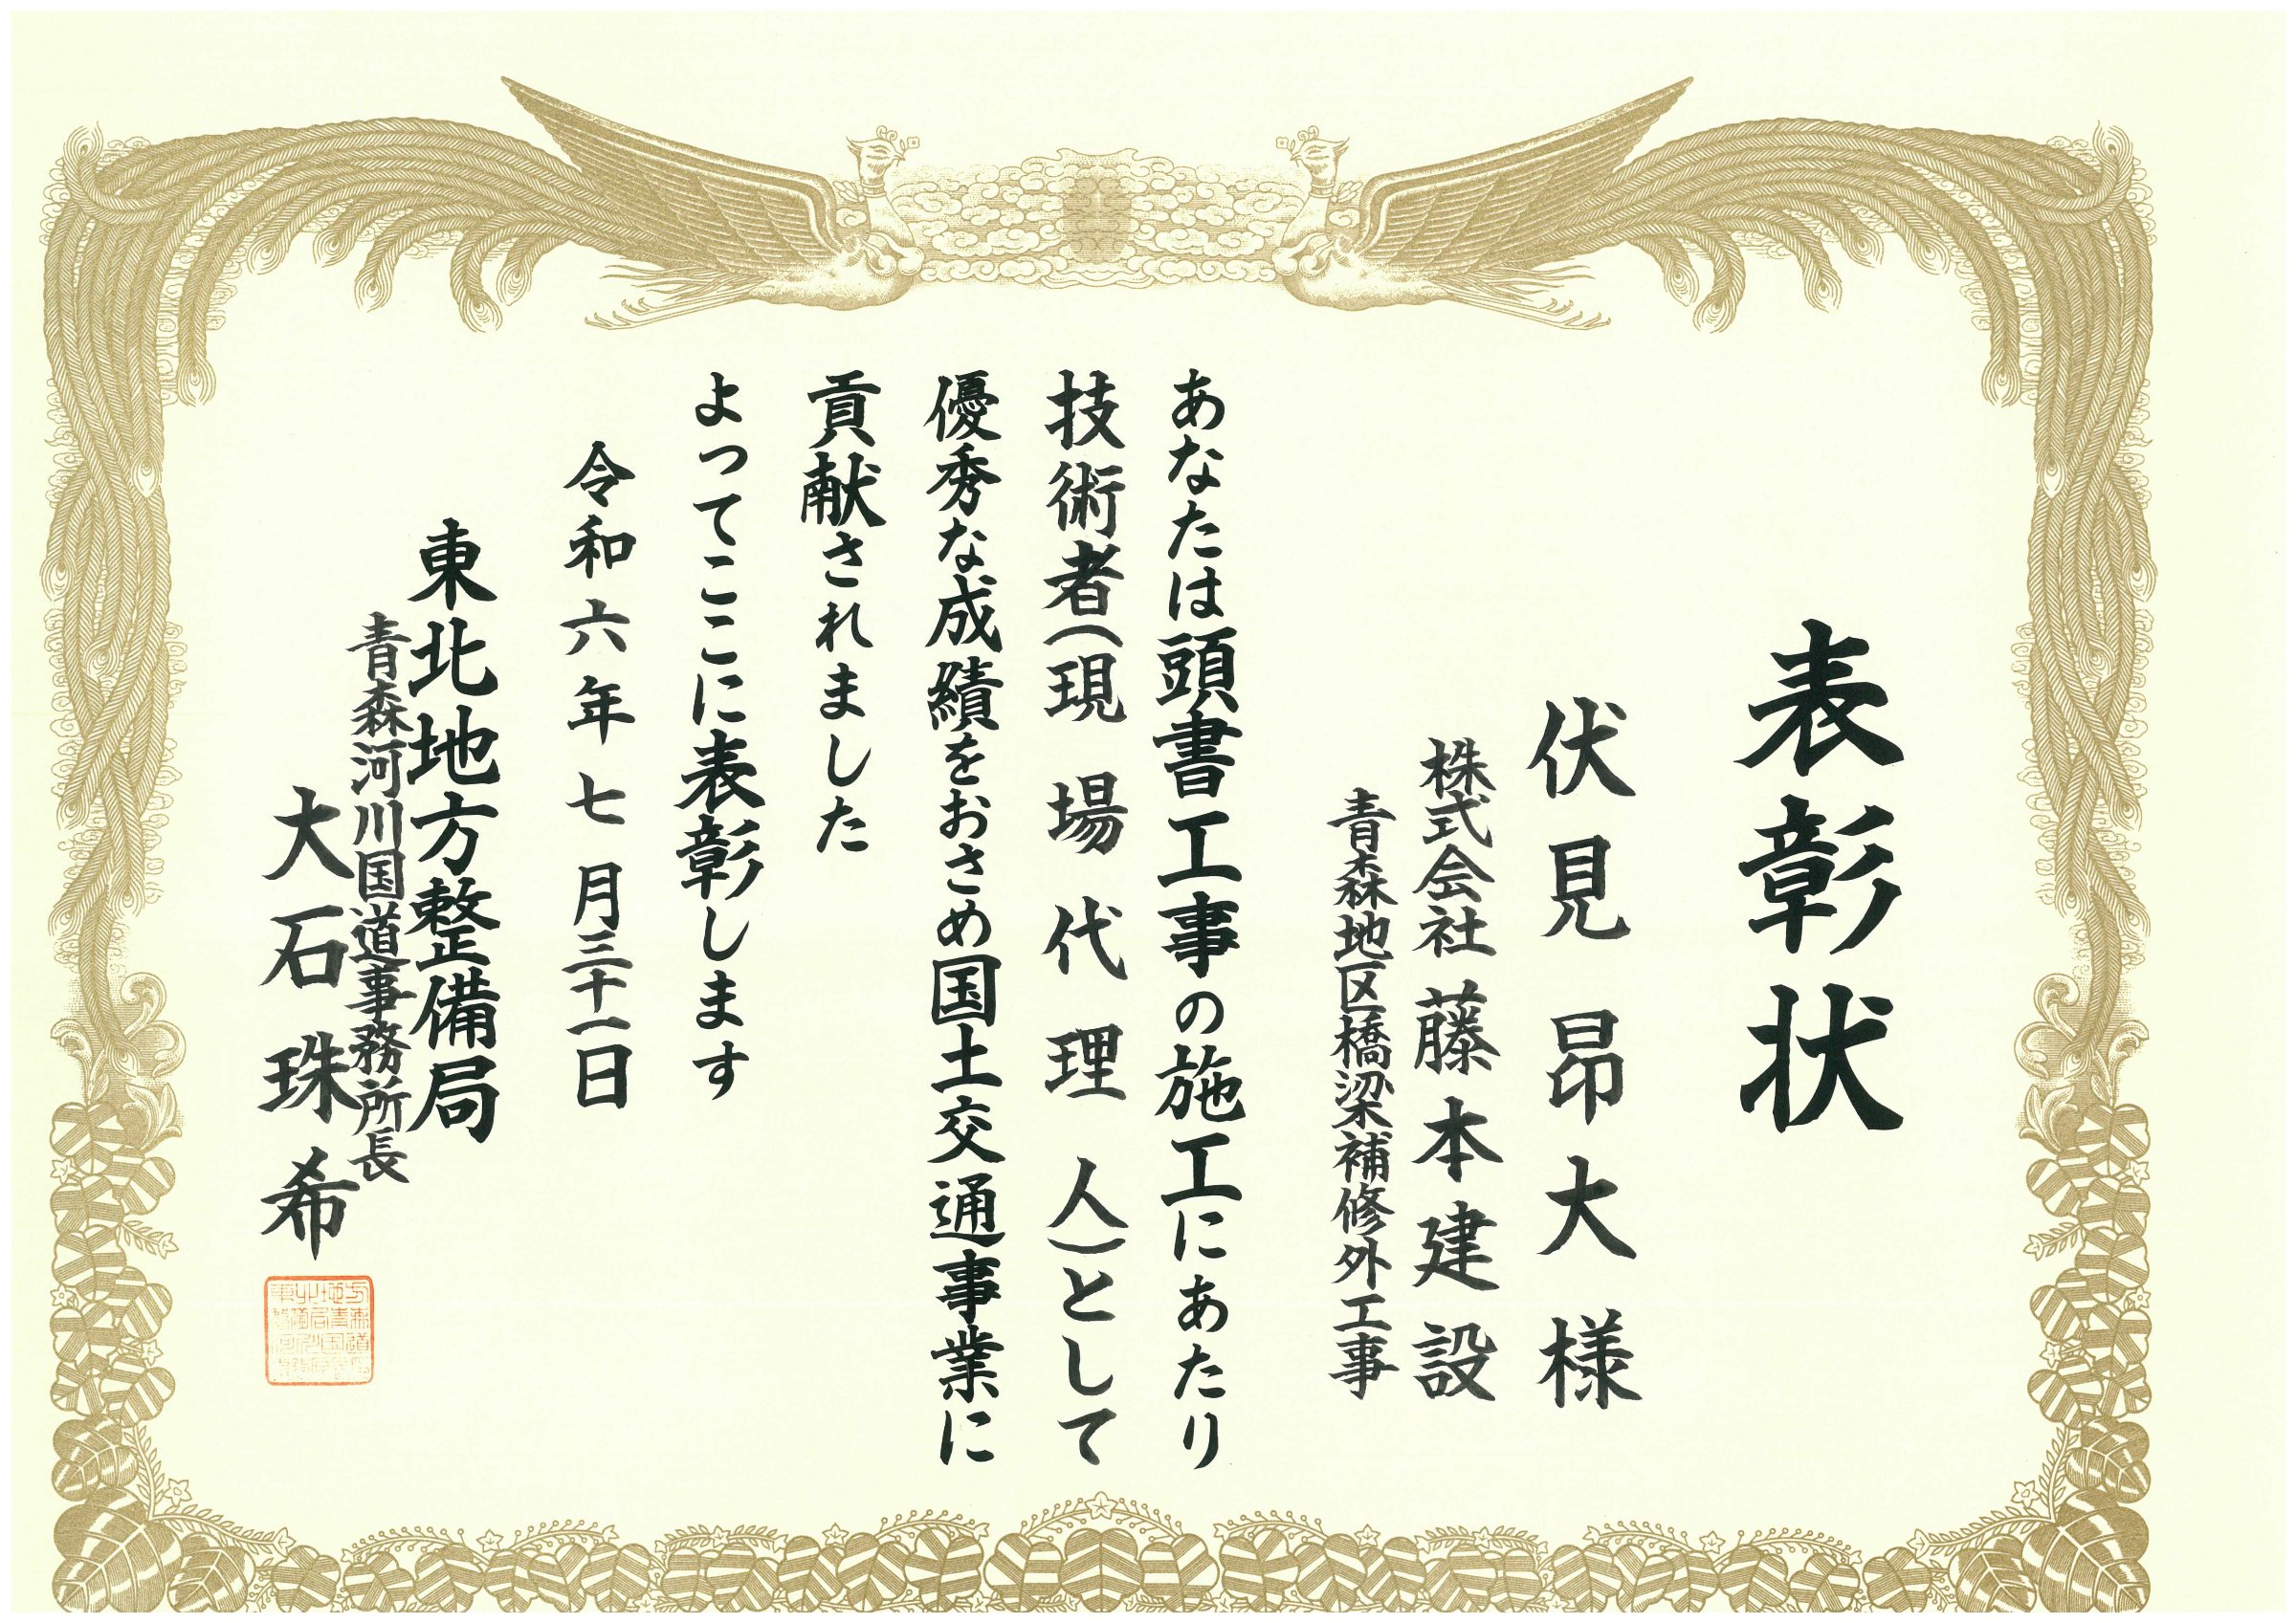 表彰状
伏見昂大様
株式会社藤本建設
青森地区橋梁補修外工事
あなたは頭書工事の施工にあたり
技術者(現場代理人)として
優秀な成績をおさめ国土交通事業に
貢献されました
よってここに表彰します
令和六年七月三十一日
東北地方整備局
青森河川国道事務所長
大石珠希